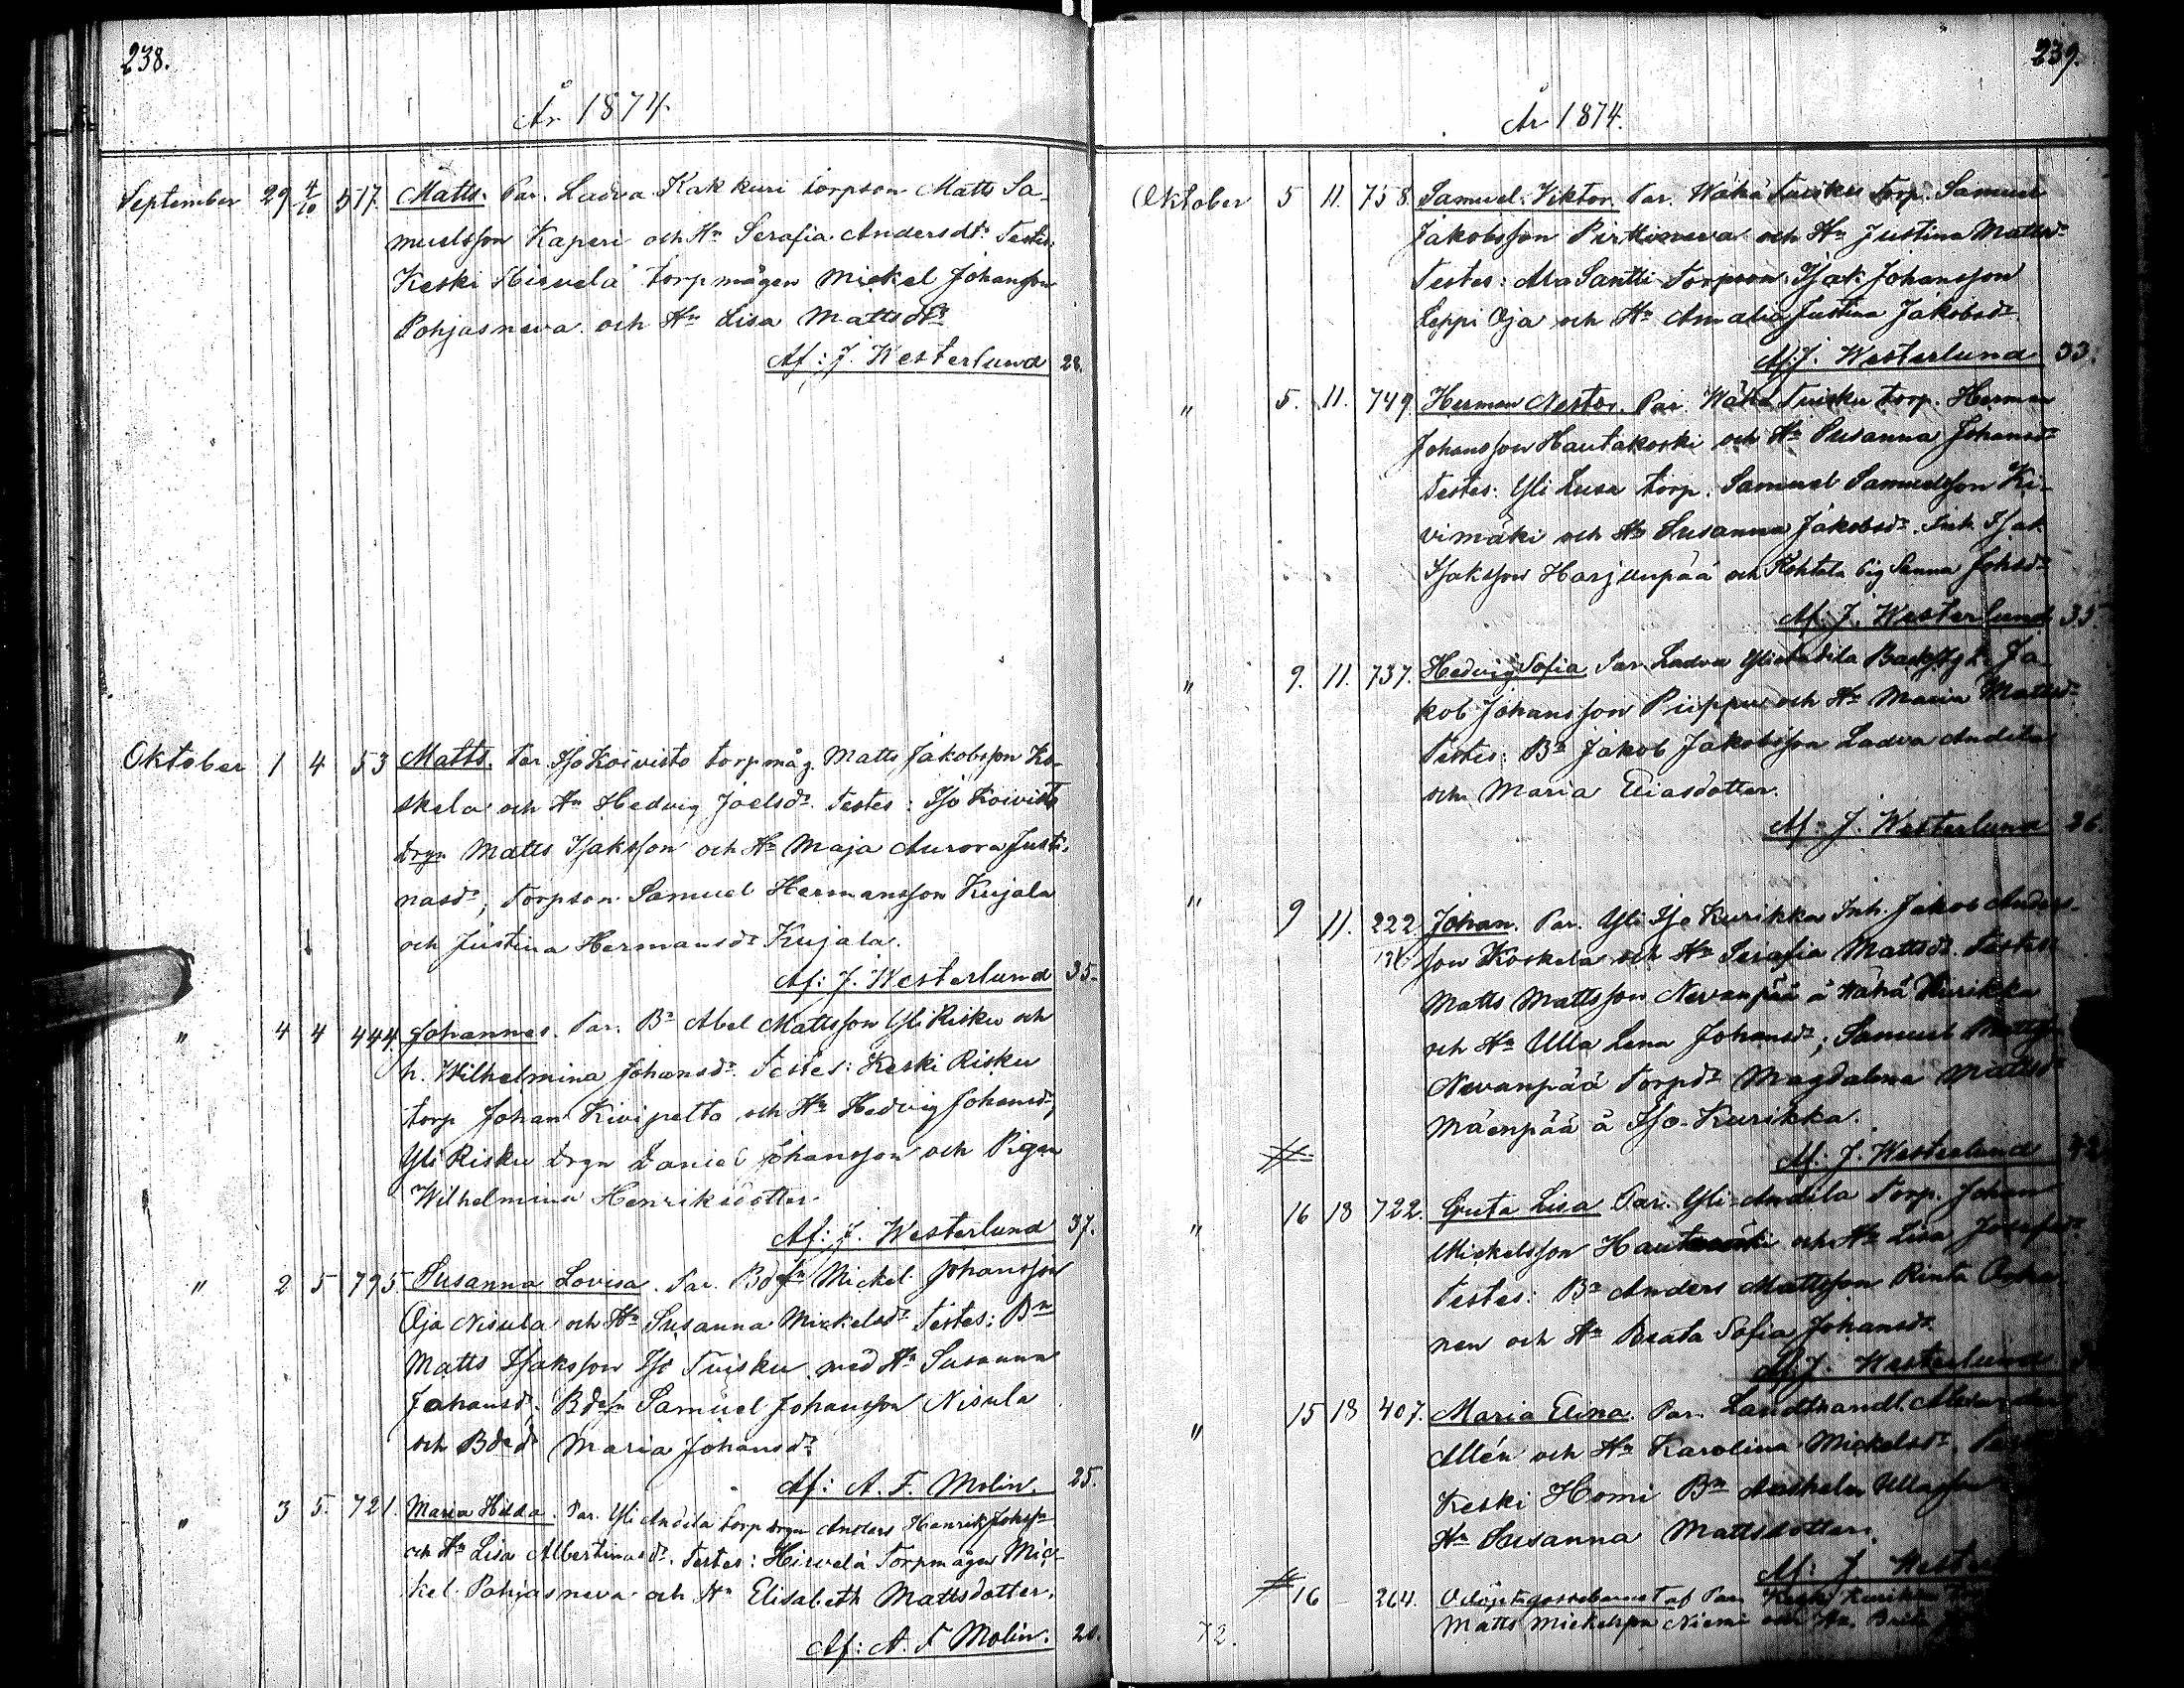 238.
År 1874.
September 29 4/10 517. Matts. Par. Ladva Kakkuri torpson Matts Sa-
muelsson Kaperi och Hu Serafia Andersdr. Testes:
Keski Hirvelä torpmågen Mickel Johansson
Pohjasneva och Hu Lisa Mattsdr
Af: J. Westerlund 28.
Oktober 1 4 53 Matts. Par. Iso Koivisto torpmåg. Matts Jakobsson Ko-
skela och Hu Hedvig Joelsdr. Testes: Iso Koivisto
drgn Matts Isaksson och Hu Maja Aurora Justi-
nasdr; Torpson Samuel Hermansson Kujala
och Justina Hermansdr Kujala.
Af: J. Westerlund 35.
" 4 4 444. Johannes. Par. Bn Abel Mattsson Yli Risku och
h. Wilhelmina Johansdr. Testes: Keski Risku
torp Johan Kivipelto och Hu Hedvig Johansdr;
Yli Risku drgn Daniel Johansson och Pigan
Wilhelmina Henriksdotter.
Af: J. Westerlund 37.
" 2 5 795. Susanna Lovisa. Par. Bdesn Mickel Johansson
Oja Nisula och Hu Susanna Mickelsdr. Testes: Bn
Matts Isaksson Iso Tuisku med Hu Susanna
Johansdr; Bdesn Samuel Johansson Nisula
och Bdedr Maria Johansdr.
Af: A. F. Molin. 25.
" 3 5. 721. Maria Hilda. Par. Yli Andila torp drgn Anders Henrik Johssn
och Hu Lisa Albertinasdr. Testes: Hirvelä Torpmågen Mic-
kel Pohjasneva och Hu Elisabeth Mattsdotter.
Af: A. F Molin. 20.
239.
År 1874.
Oktober 5 11. 758. Samuel Viktor. Par. Wähä Tuisku Torp. Samuel
Jakobsson Pirttineva och Hu Justina Mattsdr
Testes: Ala Santti Torpson Isak Johansson
Leppi Oja och Hu Amalia Justina Jakobsdr.
Af: J. Westerlund 33.
" 5. 11. 749. Herman Nestor. Par. Wähä Tuisku torp. Herman
Johansson Hautakoski och Hu Susanna Johansdr
Testes: Yli Luoa torp. Samuel Samuelsson Ki-
vimäki och Hu Susanna Jakobsdr. Inh. Isak
Isaksson Harjunpää och Kohtala pig Sanna Johsdr
Af: J. Westerlund 35.
" 9. 11. 737. Hedvig Sofia Par. Ladva Ja-
kob Johansson Piippu och Hu Maria Mattsdr.
Testes: Bn Jakob Jakobsson Ladva Andila
och Maria Eliasdotter.
Af: J. Westerlund 26.
" 9 11. 222. Johan. Par. Yli Iso Kurikka Inh. Jakob Anders-
son Koskela och Hu Serafia Mattsdr. Testes:
Matts Mattsson Nevanpää å Wähä Kurikka
och Hu Ulla Lena Johansdr; Samuel Mattsson
Nevanpää Torpdr Magdalena Mattsdr
Mäenpää å Iso-Kurikka.
Af: J. Westerlund 42
" 16 18 722. Greta Lisa Par. Yli-Andila Torp. Johan
Mickelsson och Hu Lisa Josefsdr
Testes: Bn Anders Mattsson Rinta
nen och Hu Beata Sofia Johansdr.
Af: J. Westerlund
" 15 18 407. Maria Elina. Par. Landthandl. Alexander
Allén och Hu Karolina Mickelsdr.
Keski Homi Bn
Hu Susanna Mattsdotter.
Af: J
16 – 264. Odöpt gossebarnet af Par. Keski Kurikka
Matts Mickelsson Niemi och Hu.
72.